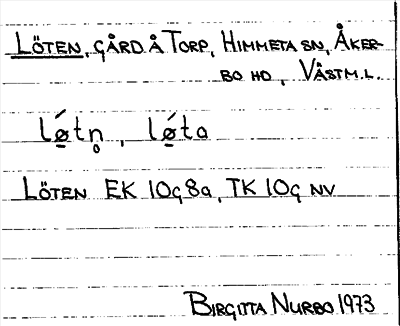 LÖTEN, GÅRD Å TORP, HIMMETA SN, ÅKER-
BO HD, VÄSTM.L.
lǿ̠tn̥, lǿ̠ta
LÖTEN EK 10G 8a, TK 10G NV
BIRGITTA NURBO 1973